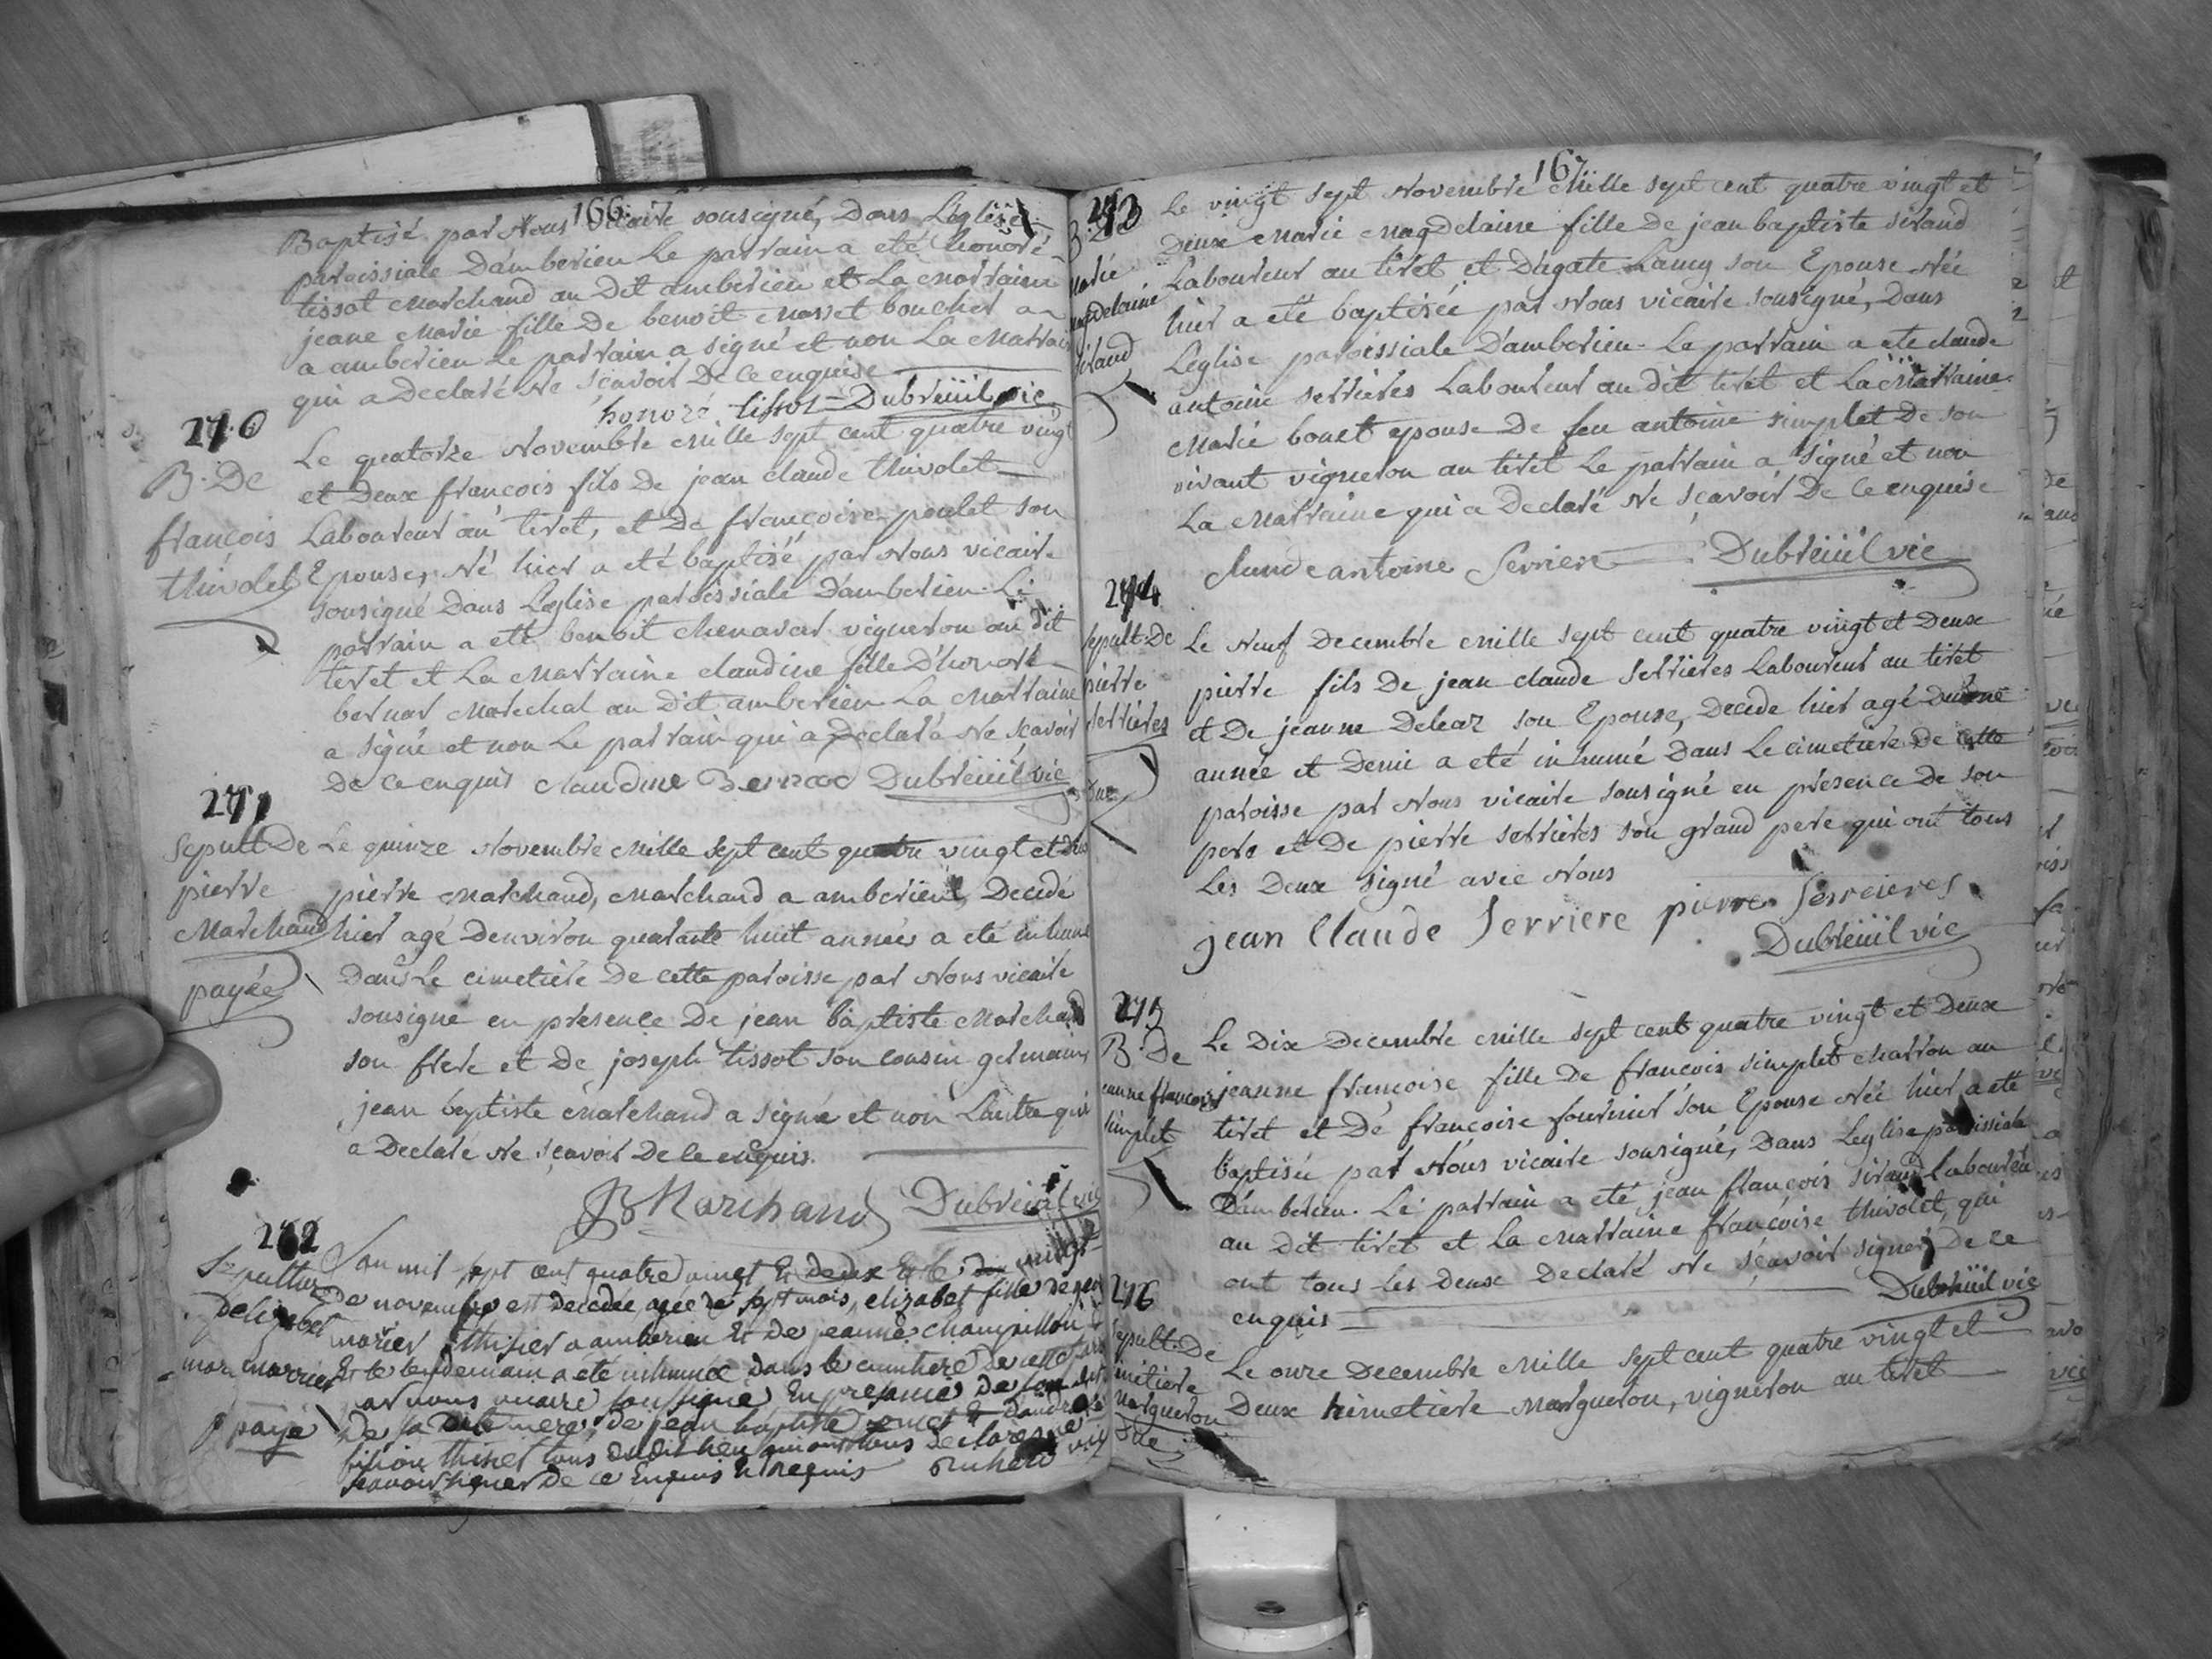 166.
Baptisé par Nous vicaire sousigné, Dans L'église
paroissiale D'amberieu Le parrain a eté honoré
tissot Marchand au Dit amberieu et La Marraine
jeane Marie fille De benoit Masset boucher
a amberieu Le parrain a signé et non La Marraine
qui a Declaré Ne sçavoir De ce enquise
honoré tissot Dubreüil vic
270
B. De
françois
thivolet
Le quatorze Novembre Mille sept cent quatre vingt
et Deux francois fils De jean claude thivolet
Laboureur au tiret, et De françoise poulet son
Epouse, Né hier a eté baptisé par Nous vicaire
sousigné Dans Leglise paroissiale D'amberieu Le
parrain a eté benoit chenavar vigneron au dit
tiret et La Marraine claudine fille D'honoré
bernar Marechal au Dit amberieu La Marraine
a signé et non Le parrain qui a Declaré Ne sçavoir
De ce enquis claudine Bernard Dubreüil vic
271
Sepult De
pierre
Marchand
payée
Le quinze Novembre Mille sept cent quatre vingt et
pierre Marchand, Marchand a amberieu, Decedé
hier agé Denviron quarante huit années a eté inhumé
dans Le cimetiere De cette paroisse par Nous vicaire
sousigné en presence De jean baptiste Marchand
son frere et De joseph tissot son cousin germain,
jean baptiste Marchand a signé et non Lautre qui
a Declaré Ne sçavoir De ce enquis.
JB Marchand Dubreüil vic
272
Sepulture
Delizabet
marier
payé
Lan mil sept cent quatre vingt et deux et le vingt
de novembre est decedée, agée de sept mois, elizabet fille de
marier thisier a amberieu et de jeanne champillon
et le lendemain a été inhumée dans le cimitiere de cette
par nous vicaire soussigné En presance de son
De sa mere, De jean baptiste
tous dudit lieu qui ont tous declaré ne
scavoir signer de ce Enquis et requis
167
273
B. De
Marie
magdelaine
siraud
Le vingt sept Novembre Mille sept cent quatre vingt et
Deux Marie Magdelaine fille de jean baptiste siraud
Laboureur au tiret et D'agate Lamy son Epouse Née
hier a eté baptisée par Nous vicaire sousigné, Dans
Leglise paroissiale D'amberieu. Le parrain a eté claude
antoine serrieres Laboureur au dit tiret et La Marraine
Marie bouet epouse De feu antoine simplet De son
vivant vigneron au tiret Le parrain a signé et non
La Marraine qui a Declaré Ne sçavoir De ce enquise
claude antoine serriere Dubreüil vic
274
sepult De
pierre
serrieres
Due
Le Neuf Decembre Mille sept cent quatre vingt et Deux
pierre fils De jean claude serrieres Laboureur au tiret
et De jeanne Deleaz son Epouse, Decedé hier agé Dune
année et Demie a eté inhumé Dans Le cimetiere De cette
paroisse par Nous vicaire sousigné en presence De son
pere et De pierre serrieres son grand pere qui ont tous
Les Deux signé avec Nous
jean Claude Serriere pierre Serrieres
Dubreüil vic
275
B. De
jeanne françoise
simplet
Le Dix Decembre Mille sept cent quatre vingt et Deux
jeanne françoise fille De francois simplet charron au
tiret et De françoise fournier son Epouse Née hier a eté
baptisée par Nous vicaire sousigné, Dans Leglise paroissiale
D'amberieu. Le parrain a eté jean françois siraud Laboureur
au dit tiret et la Marraine françoise thivolet, qui
ont tous les Deux Declaré Ne sçavoir signer, De ce
enquis Dubreüil vic
276
sepult De
himetiere
Margueron
Due
Le onze Decembre Mille sept cent quatre vingt et
Deux himetiere Margueron, vigneron au tiret